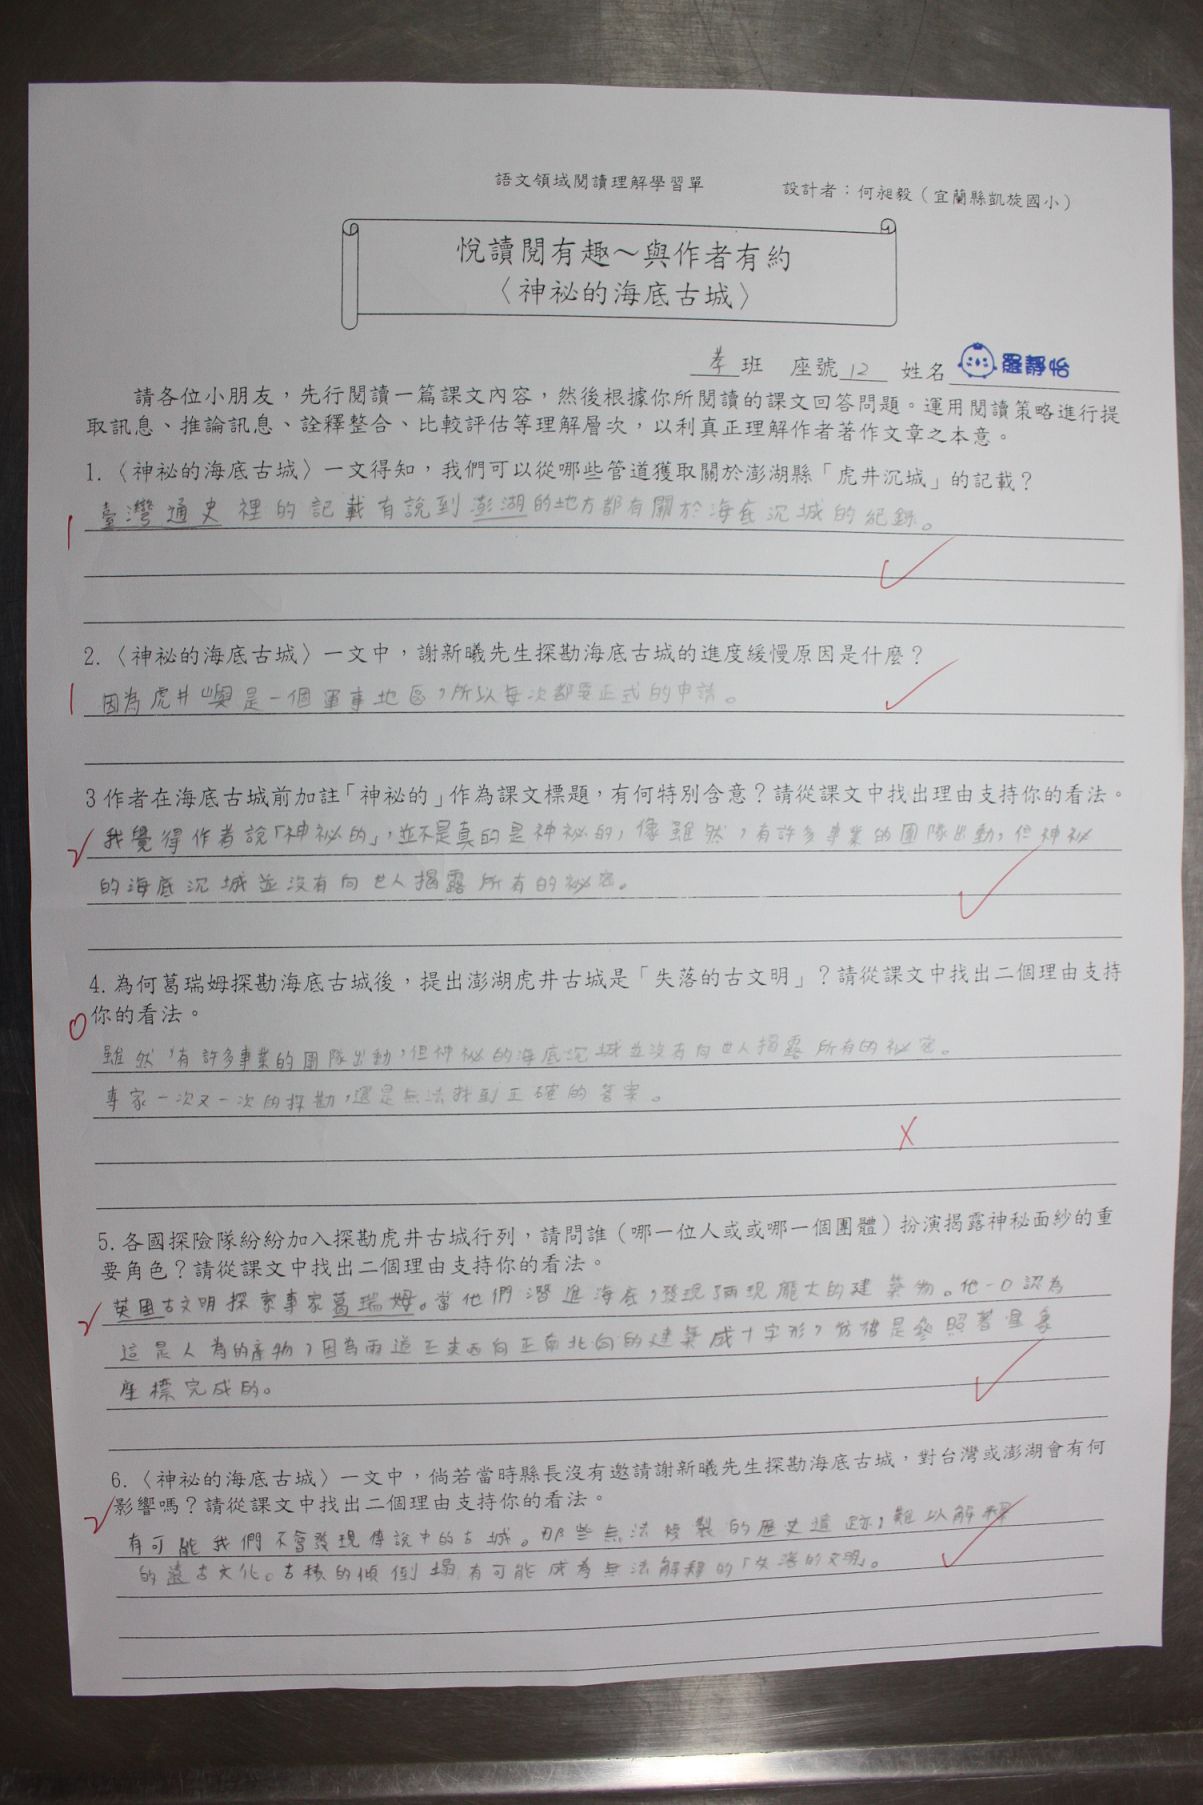 語文領域閱讀理解學習單
設計者：何昶毅（宜蘭縣凱旋國小）
悅讀閱有趣～與作者有約
〈神祕的海底古城〉
孝班 座號12 姓名 羅靜怡
請各位小朋友，先行閱讀一篇課文內容，然後根據你所閱讀的課文回答問題。運用閱讀策略進行提
取訊息、推論訊息、詮釋整合、比較評估等理解層次，以利真正理解作者著作文章之本意。
1.〈神祕的海底古城〉一文得知，我們可以從哪些管道獲取關於澎湖縣「虎井沉城」的記載？
1 臺灣通史裡的記載有說到澎湖的地方都有關於海底沉城的紀錄。
2.〈神祕的海底古城〉一文中，謝新曦先生探勘海底古城的進度緩慢原因是什麼？
1 因為虎井嶼是一個軍事地區，所以每次都要正式的申請。
3 作者在海底古城前加註「神祕的」作為課文標題，有何特別含意？請從課文中找出理由支持你的看法。
2 我覺得作者說「神祕的」，並不是真的是神祕的，像雖然，有許多專業的團隊出動，但神祕
的海底沉城並沒有向世人揭露所有的祕密。
4.為何葛瑞姆探勘海底古城後，提出澎湖虎井古城是「失落的古文明」？請從課文中找出二個理由支持
0 你的看法。
雖然，有許多專業的團隊出動，但神祕的海底沉城並沒有向世人揭露所有的祕密。
專家一次又一次的探勘，還是無法找到正確的答案。
5.各國探險隊紛紛加入探勘虎井古城行列，請問誰（哪一位人或或哪一個團體）扮演揭露神秘面紗的重
要角色？請從課文中找出二個理由支持你的看法。
2 英國古文明探索專家葛瑞姆。當他們潛進海底，發現龐大的建築物。他一口認為
這是人為的產物，因為兩道正東西向正南北向的建築成十字形，彷彿是參照著星象
座標完成的。
6.〈神祕的海底古城〉一文中，倘若當時縣長沒有邀請謝新曦先生探勘海底古城，對台灣或澎湖會有何
2 影響嗎？請從課文中找出二個理由支持你的看法。
有可能我們不會發現傳說中的古城。那些無法複製的歷史遺跡，難以解釋
的遠古文化。古蹟的傾倒塌有可能成為無法解釋的「失落的文明」。